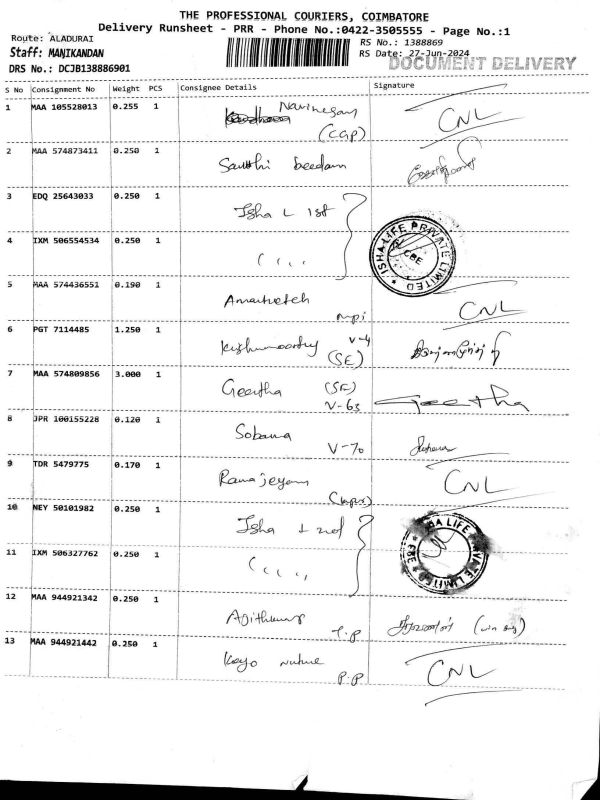 THE PROFESSIONAL COURIERS, COIMBATORE
Delivery Runsheet - PRR - Phone No.:0422-3505555 - Page No.:1
Route: ALADURAI
RS No.: 1388869
Staff: MANIKANDAN
RS Date: 27-Jun-2024
DRS No.: DCJB138886901
DOCUMENT DELIVERY
S No Consignment No Weight PCS Consignee Details Signature
1 MAA 105528013 0.255 1 CNL
2 MAA 574873411 0.250 1
3 EDQ 25643033 0.250 1 Isha L 1st
ISHA LIFE PRIVATE LIMITED
CBE
4 IXM 506554534 0.250 1
5 MAA 574436551 0.190 1 CNL
6 PGT 7114485 1.250 1 V-4
(SE)
7 MAA 574809856 3.000 1 Geetha (SE) Geetha
V-63
8 JPR 100155228 0.120 1 Sobana
V-70
9 TDR 5479775 0.170 1 Ramajeyam CNL
10 NEY 50101982 0.250 1 Isha L 2nd
ISHA LIFE PRIVATE LIMITED
CBE
11 IXM 506327762 0.250 1
12 MAA 944921342 0.250 1 T.P
13 MAA 944921442 0.250 1 CNL
P.P